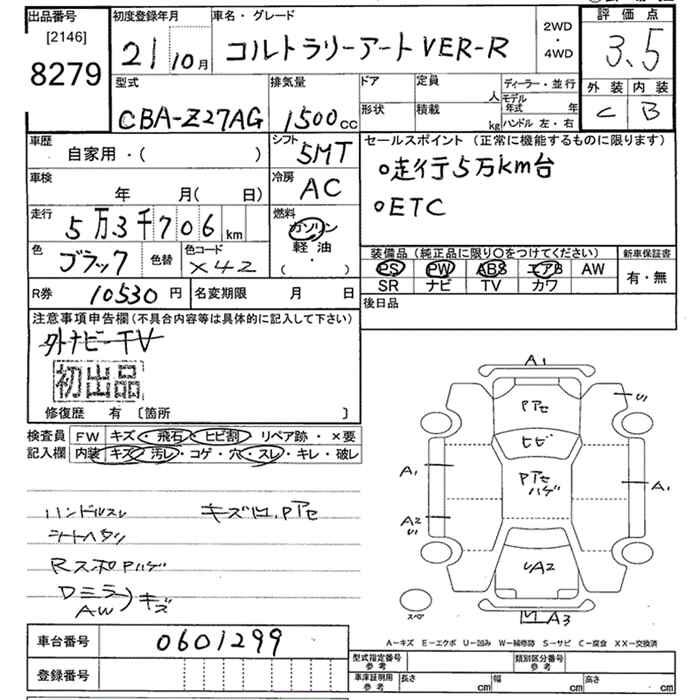 出品番号 初度登録年月 車名・グレード 2WD・4WD 評価点
[2146]
8279 21 10月 コルトラリーアートVER-R 3.5
型式 排気量 ドア 定員 人 ディーラー・並行 外装 内装
CBA-Z27AG 1500cc 形状 積載 kg モデル年式 年 C B
ハンドル 左・右
車歴 シフト セールスポイント (正常に機能するものに限ります)
自家用・( ) 5MT
車検 冷房 ○走行5万km台
年 月( 日) AC ○ETC
走行 燃料
5万3千706km ガソリン
色 色替 色コード 軽油
ブラック X42 ( ・ )
装備品 (純正品に限り○をつけてください) 新車保証書
PS PW ABS エアB AW 有・無
SR ナビ TV カワ
R券 10530円 名変期限 月 日 後日品
注意事項申告欄(不具合内容等は具体的に記入して下さい)
外ナビーTV
初出品
修復歴 有 〔箇所 〕
検査員 FW キズ・飛石・ヒビ割 リペア跡・×要
記入欄 内装 キズ・汚レ・コゲ・穴・スレ・キレ・破レ
ハンドルスレ キズ凹、Pアセ
シートヘタリ
Rス和Pハゲ
Dミラー
AW)キズ
A1
Pアセ
U1
ヒビ
A1 Pアセ A1
ハゲ
A2
U1
UA2
スペア A3
A-キズ E-エクボ U-凹み W-補修跡 S-サビ C-腐食 XX-交換済
車台番号 0601299
登録番号
型式指定番号 参考 類別区分番号 参考
車庫証明用 参考 長さ cm 幅 cm 高さ cm